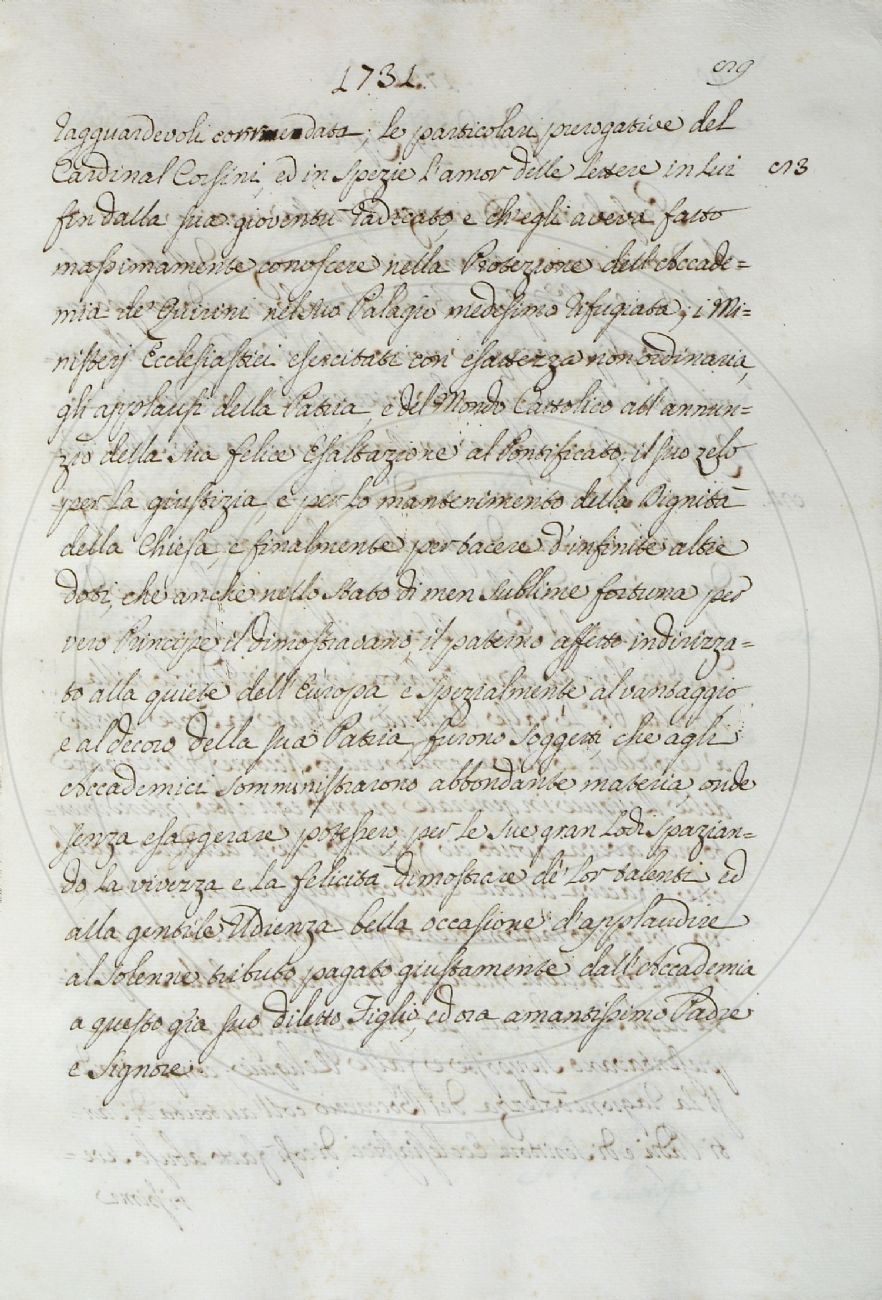 1731.
ragguardevoli commendata; le particolari prerogative del
Cardinal Corsini, ed in spezie l'amor delle lettere in lui
fin dalla sua gioventù radicato, e ch'egli aveva fatto
massimamente conoscere nella Protezione dell'Accade=
mia de' Quirini nel suo Palagio medesimo rifugiata; i Mi=
nisterj Ecclesiastici esercitati con esattezza non ordinaria,
gli applausi della Patria, e del Mondo Cattolico all'annun=
zio della sua felice Esaltazione al Pontificato; il suo zelo
per la giustizia, e per lo mantenimento della Dignità
della Chiesa, e finalmente per tacere d'infinite altre
doti, che anche nello stato di men sublime fortuna per
vero Principe il dimostravano, il paterno affetto indirizza=
to alla quiete dell'Europa e spezialmente al vantaggio,
e al decoro della sua Patria, furono soggetti, che agli
Accademici somministrarono abbondante materia, onde
senza esaggerare potessero, per le sue gran lodi spazian=
do, la vivezza e la felicità dimostrare de' lor talenti ed
alla gentile Udienza bella occasione d'applaudire
al solenne tributo pagato giustamente dall'Accademia
a questo già suo diletto Figlio, ed ora amantissimo Padre
e Signore.